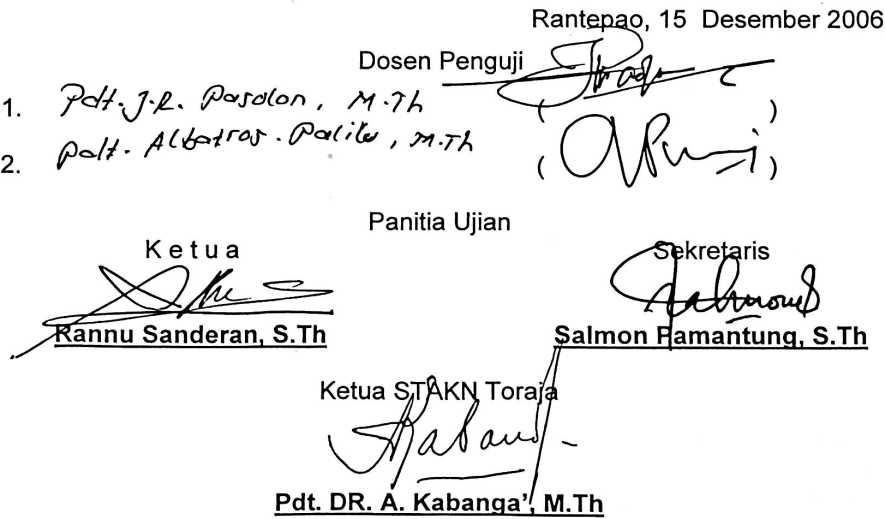 Rantepao, 15 Desember 2006
Dosen Penguji
1. Pdt. J.R. Pasolon, M.Th ( )
2. Pdt. Albatros Palilu, M.Th ( )
Panitia Ujian
Ketua Sekretaris
Rannu Sanderan, S.Th Salmon Pamantung, S.Th
Ketua STAKN Toraja
Pdt. DR. A. Kabanga', M.Th